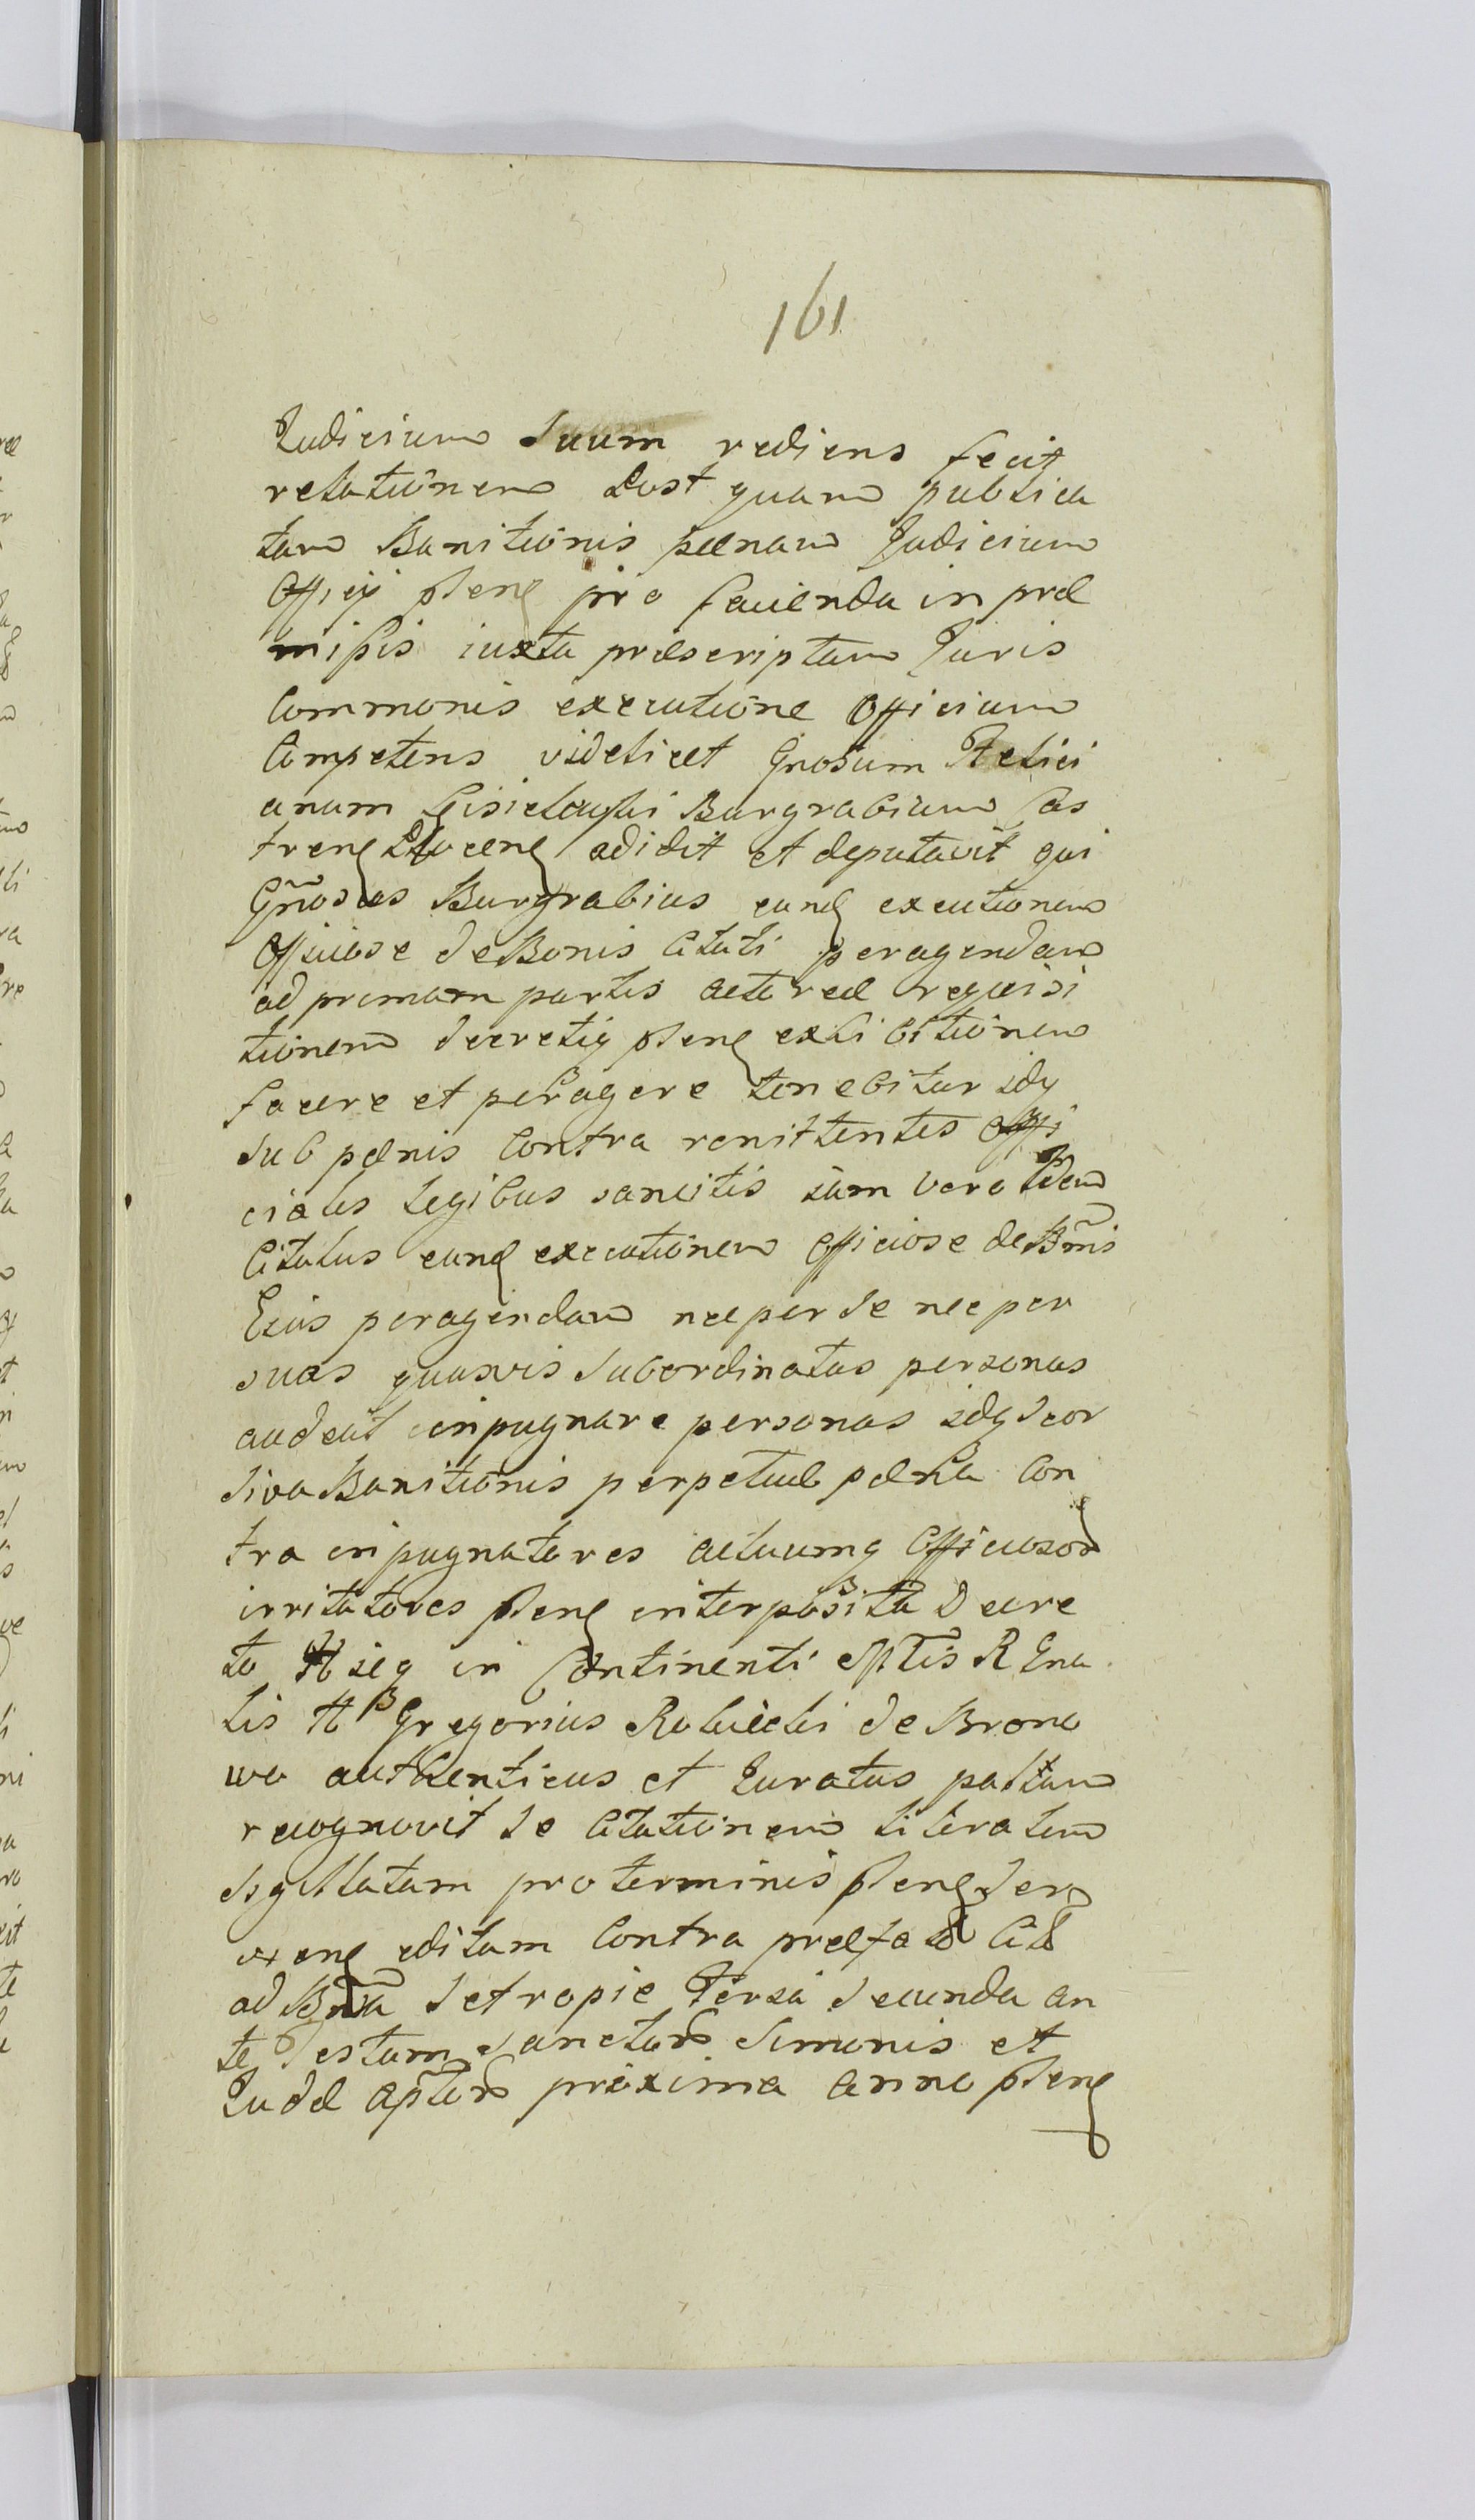 161
Iudicium Suum rediens fecit
relationem Post quam publica
tam Banitionis pænam Iudicium
Officij pſens pro facienda in præ
mißis iuxta præscriptum Iuris
Commonis executione Officium
Competens videlicet Gnosum Felici
anum Burgrabium Cas
trens adidit et deputavit qui
Gnosus Burgrabius eand executionem
Officiose de Bonis Citati peragendam
ad primam partis actoreæ requisi
tionem decretiq pſens exhibitionem
facere et peragere tenebitur idq
sub pænis Contra renittentes Offi
ciales legibus sancitis iam vero Idem
Citatus eand executionem Officiose de Bnis
Eius peragendam nec per se nec per
suas quasvis Subordinatas personas
audeat inpugnare personas idq Seor
siva Banitionis perpetuæ pæna Con
tra inpugnatores actuumq Officiosor
irritatores pſens interposita Decre
to in Continenti Mtis R Gna
lis Gregorius de Brono
wo authenticus et Iuratus palam
recognovit se Citationem literatem
Sigillatam pro terminis pſens
editam Contra præfat Cit
ad Bna Setropie Feria Secunda an
te Festum Sanctor Simonis et
Iudæ Aptor proxima Anno pſens